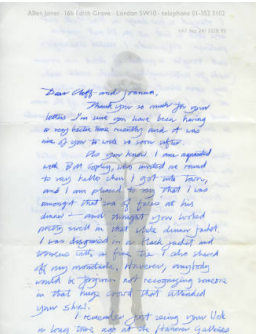 Allen Jones · 16b Edith Grove · London SW10 · telephone 01-352 5102
Dear Cliff and Joanna,
Thank you so much for your
letter. I'm sure you have been having
a very hectic time mostly and it was
nice of you to write so soon after.
As you know I am
with B M who me round
to say hello when I got into town,
and I am pleased to say that I was
amongst that sea of faces at his
dinner — and thought you looked
pretty swell in that white dinner jacket.
I was disguised in a black jacket and
a I also shaved
off my moustache. However, anybody
would be forgiven not recognising someone
in that huge crowd that attended
your show.
I remember first seeing your work
a long time not at the Hanover Galleries